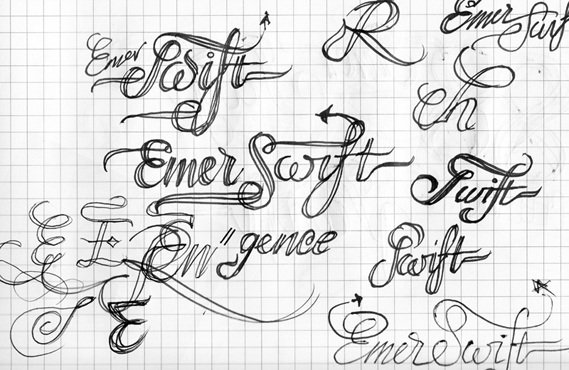 Emer Swift
R
Emer Swift
ch
Emer Swift
Swift
E E Em" gence
Swift
S E
Emer Swift